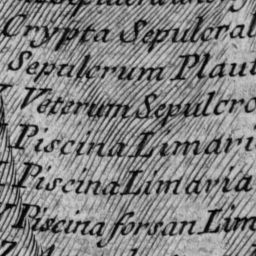 Crypta Sepulcral
Sepulcrum Plaut
Veterum Sepulcro
Piscina Limari
Piscina Limaria
Piscina forsan Lim